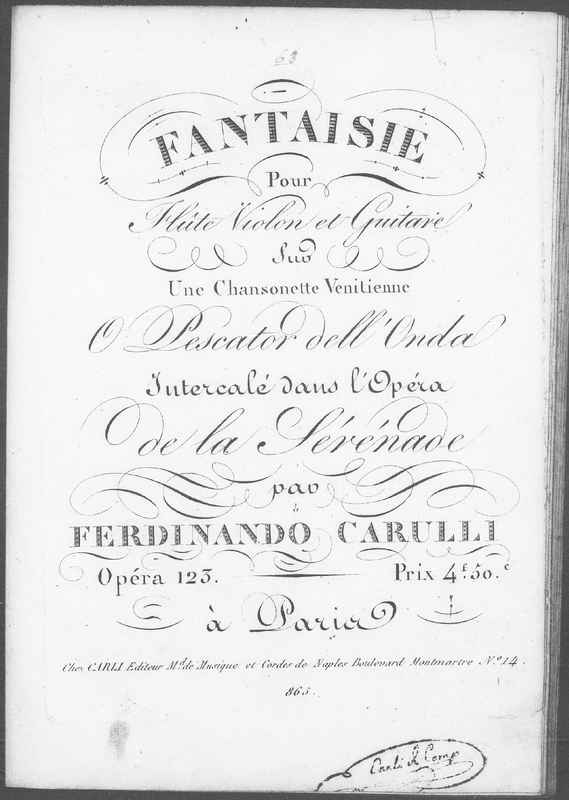 63
FANTAISIE
Pour
Flûte Violon et Guitare
Sur
Une Chansonette Venitienne
O Pescator dell'Onda
Intercalé dans l'Opéra
de la Sérénade
par
FERDINANDO CARULLI
Opéra 123. Prix 4f. 50.c
à Paris
Chez CARLI Editeur Md. de Musique et Cordes de Naples Boulevard Montmartre No. 14.
865.
Carli & Comp